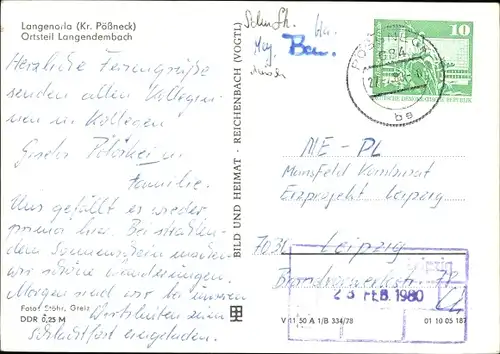 Langenorla (Kr. Pößneck)
Ortsteil Langendembach
Herzliche Feriengrüße
senden allen Kolleginnen
nen u. Kollegen
Gisela
u.
Familie.
Uns gefällt es wieder
prima hier. Bei strahlen-
dem Sonnenschein machen
wir schöne Wanderungen.
Morgen sind wir bei unseren
Wirtsleuten zum
Schlachtfest eingeladen.
Foto: Stöhr, Greiz
DDR 0,25 M
BILD UND HEIMAT · REICHENBACH (VOGTL)
Bau.
PÖSSNECK
684
be
10
DEUTSCHE DEMOKRATISCHE REPUBLIK
ME - PL
Mansfeld Kombinat
Erzprojekt Leipzig
7031 Leipzig
Brandvorwerkstr.
23 FEB. 1980
V 11 50 A 1/B 334/78
01 10 05 187